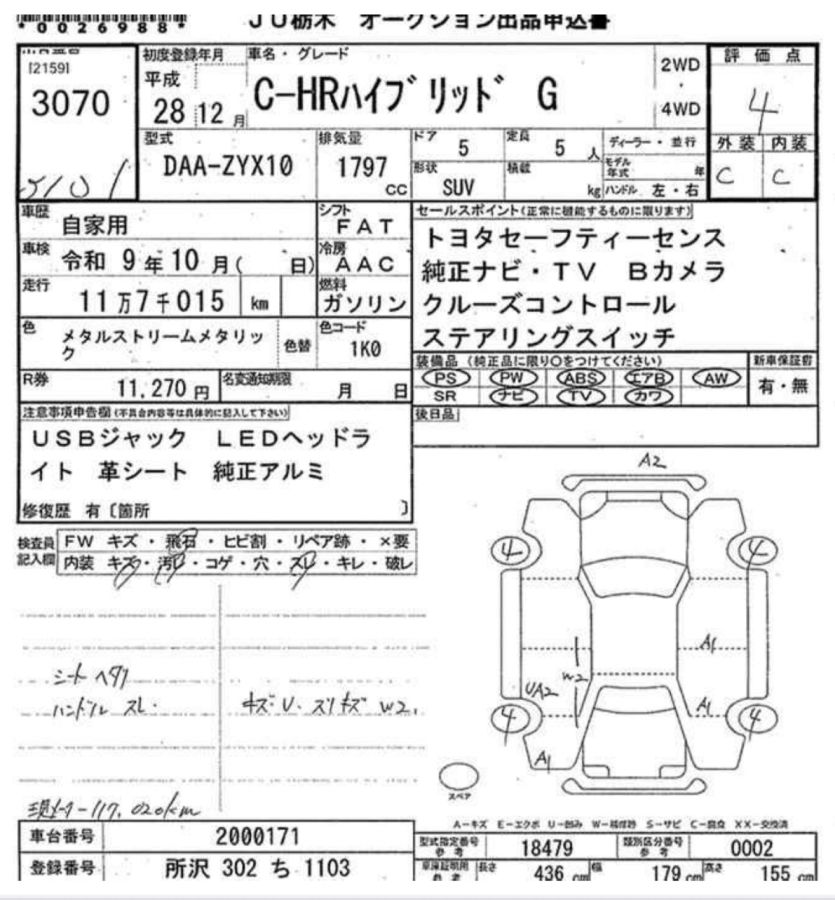 *0026988*
JU栃木 オークション出品申込書
[2159]
3070
初度登録年月
平成
28 12 月
車名・グレード
C-HRハイブリッド G
2WD
・
4WD
評価点
4
外装 内装
C C
型式
DAA-ZYX10
排気量
1797
CC
ドア
5
定員
5 人
ディーラー・並行
形状
SUV
積載
kg
モデル年式 年
ハンドル 左・右
車歴
自家用
シフト
FAT
車検
令和 9年10月( 日)
冷房
AAC
走行
11万7千015 km
燃料
ガソリン
色
メタルストリームメタリッ
ク
色替
色コード
1K0
R券
11,270円
名変通知期限
月 日
セールスポイント(正常に機能するものに限ります)
トヨタセーフティーセンス
純正ナビ・TV Bカメラ
クルーズコントロール
ステアリングスイッチ
装備品 (純正品に限り○をつけてください)
PS PW ABS エアB AW
SR ナビ TV カワ
新車保証書
有・無
後日品
注意事項申告欄(不具合内容等は具体的に記入して下さい)
USBジャック LEDヘッドラ
イト 革シート 純正アルミ
修復歴 有〔箇所 〕
検査員
記入欄
FW キズ・飛石・ヒビ割・リペア跡・×要
内装 キズ・汚レ・コゲ・穴・スレ・キレ・破レ
シートヘタリ
ハンドル スレ.
キズ・U・スリキズ W2.
117,020km
A2
4 4
A1
W2
UA2
A1
4 4
A1
スペア
A-キズ E-エクボ U-凹み W-補修跡 S-サビ C-腐食 XX-交換済
車台番号
2000171
登録番号
所沢 302 ち 1103
型式指定番号
参考
18479
類別区分番号
参考
0002
車庫証明用
参考
長さ 436 cm
幅 179 cm
高さ 155 cm